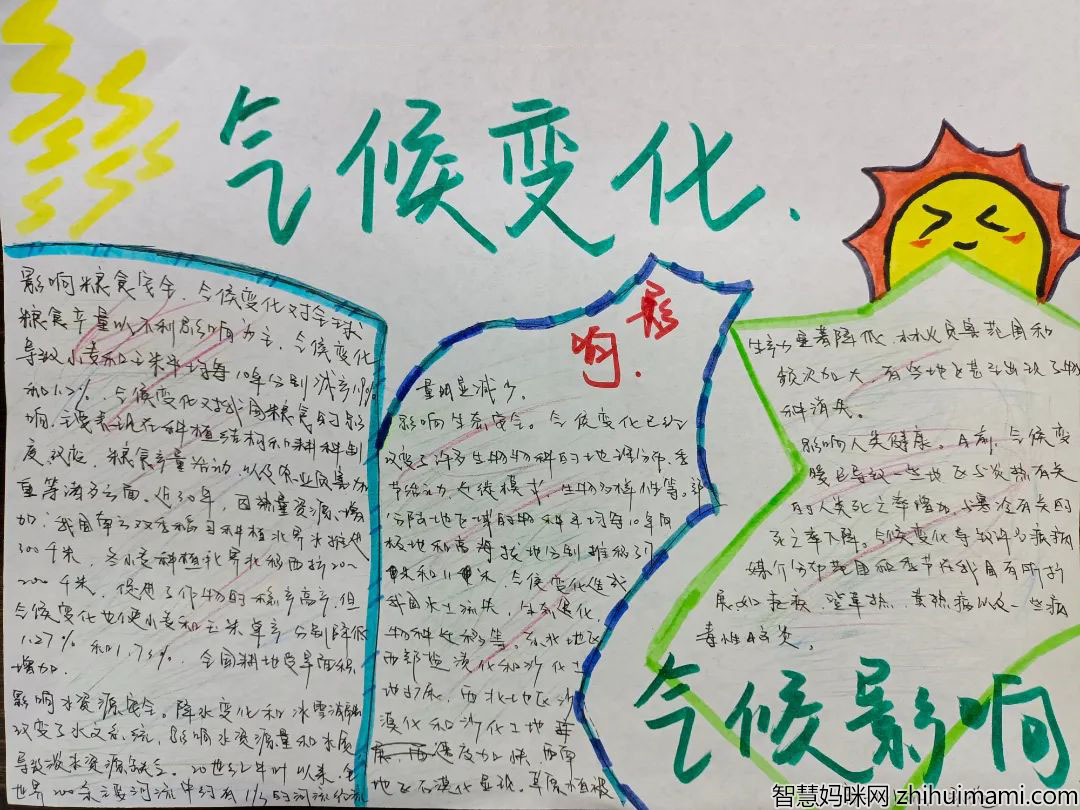 气候变化.
影响粮食安全 气候变化对全球
粮食产量以不利影响为主。气候变化
导致小麦和玉米平均每10年分别减产1.9%
和1.2%。气候变化对我国粮食的影
响,主要表现在种植结构和耕种制
度改变,粮食产量波动,以及农业灾害加
重等诸多方面。近30年,因热量资源增
加,我国南方双季稻可种植北界北推近
300千米,冬小麦种植北界北移西扩20-
200千米,促进了作物的稳产高产,但
气候变化也使小麦和玉米单产分别降低
1.27% 和1.73%,全国耕地受旱面积
增加。
影响水资源安全。降水变化和冰雪消融
改变了水文系统,影响水资源量和水质
导致淡水资源缺乏。20世纪中叶以来,全
世界200条主要河流中约有1/3的河流径流
影
响.
量明显减少。
影响生态安全。气候变化已经
改变了许多生物物种的地理分布、季
节活动、迁徙模式、生物多样性等。部
分陆地区域的物种平均每10年向
极地和高海拔地分别推移了
和11米。气候变化造成
我国水土流失,生态退化,
物种迁移等。东北地区
西部盐渍化和沙化土
地扩展,西北地区沙
漠化和沙化土地
速度加快,西南
地区石漠化显现。草原植被
生产力显著降低,林火灾害范围和
频次加大,有些地区甚至出现了物
种消失。
影响人类健康。目前,气候变
暖已导致一些地区与炎热有关
的人类死亡率增加,与寒冷有关的
死亡率下降。气候变化导致许多疾病
媒介分布范围和季节在我国有所扩
展,如疟疾、登革热、黄热病以及一些病
毒性脑炎。
气候影响
智慧妈咪网 zhihuimami.com